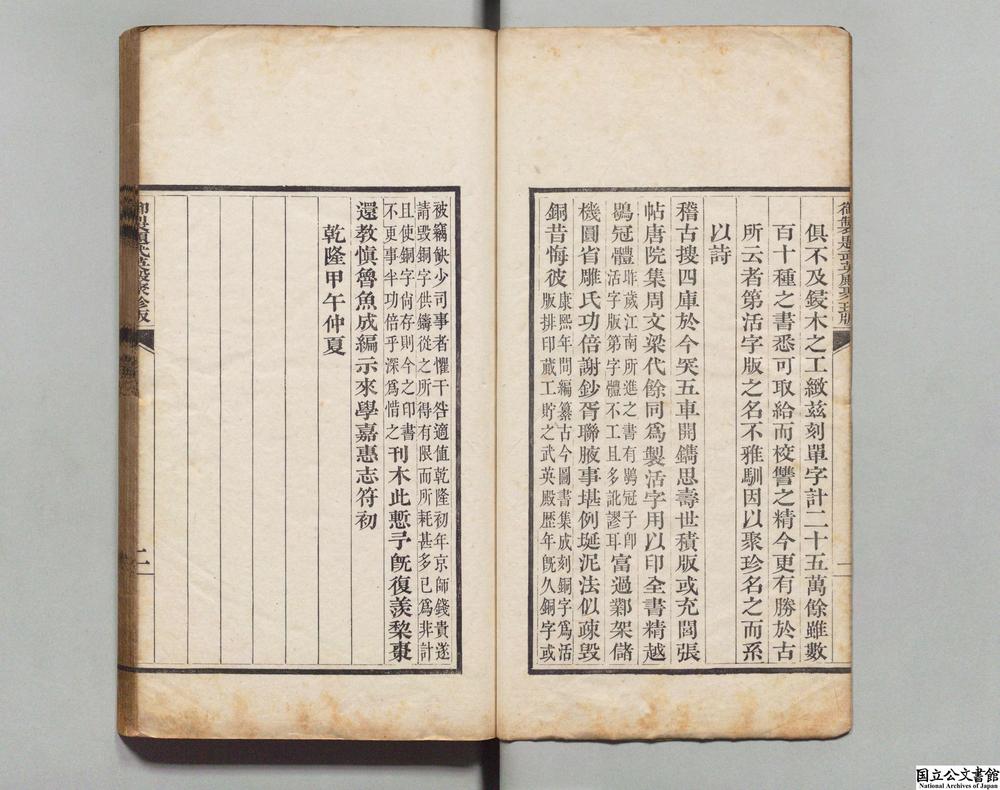 御製題武英殿聚珍版
俱不及鋟木之工緻茲刻單字計二十五萬餘雖數
百十種之書悉可取給而校讐之精今更有勝於古
所云者第活字版之名不雅馴因以聚珍名之而系
以詩
稽古搜四庫於今突五車開鐫思壽世積版或充閭張
帖唐院集周文梁代餘同爲製活字用以印全書精越
鶡冠體昨歲江南所進之書有鶡冠子卽
活字版第字體不工且多訛謬耳富過鄴架儲
機圓省雕氏功倍謝鈔胥聯腋事堪例埏泥法似疎毀
銅昔悔彼康熙年間編纂古今圖書集成刻銅字爲活
版排印蕆工貯之武英殿歷年旣久銅字或
被竊缺少司事者懼干咎適值乾隆初年京師錢貴遂
請毀銅字供鑄從之所得有限而所耗甚多已爲非計
且使銅字尙存則今之印書
不更事半功倍乎深爲惜之刊木此慙予旣復羨棃棗
還教愼魯魚成編示來學嘉惠志符初
乾隆甲午仲夏
御製題武英殿聚珍版
二
国立公文書館
National Archives of Japan